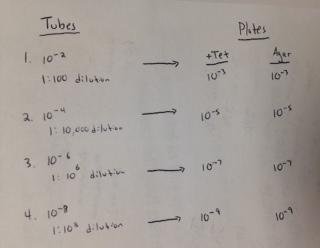 Tubes Plates
+Tet Agar
1. 10⁻² → 10⁻³ 10⁻³
1:100 dilution
2. 10⁻⁴ → 10⁻⁵ 10⁻⁵
1:10,000 dilution
3. 10⁻⁶ → 10⁻⁷ 10⁻⁷
1:10⁶ dilution
4. 10⁻⁸ → 10⁻⁹ 10⁻⁹
1:10⁸ dilution